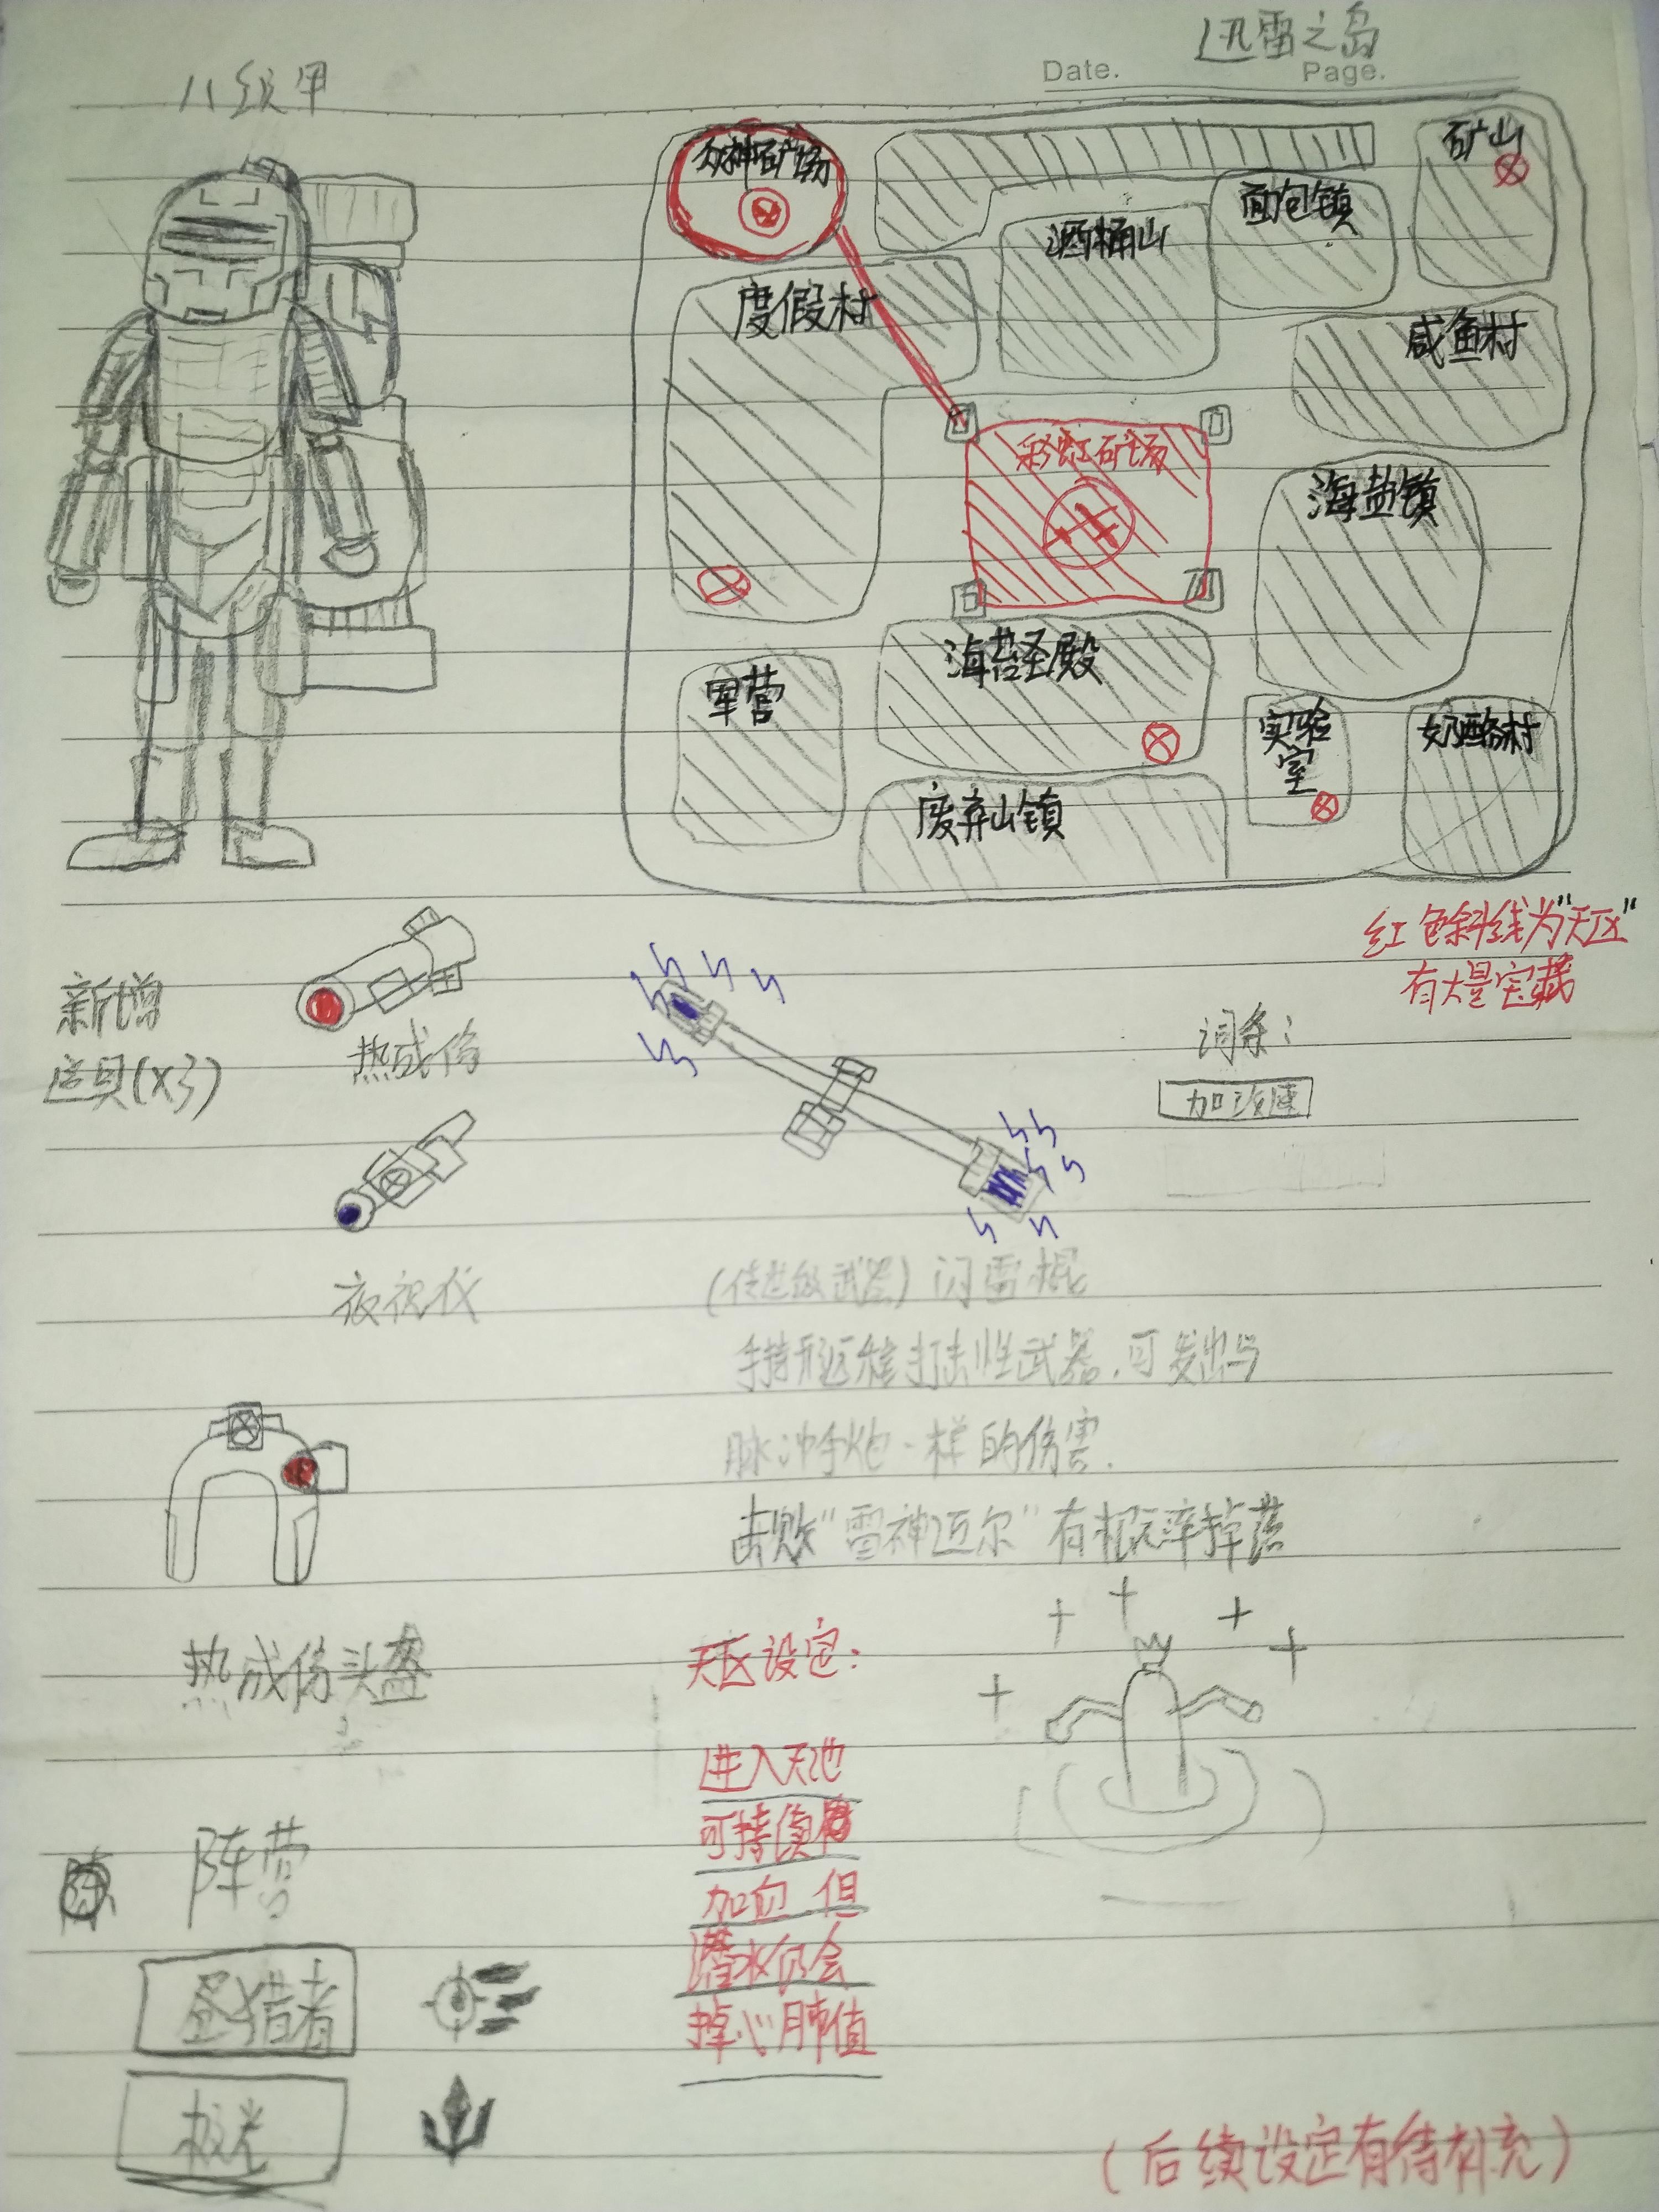 迅雷之岛
Date.
Page.
八级甲
众神矿场
矿山
面包镇
酒桶山
度假村
咸鱼村
彩虹矿场
海盐镇
海苔圣殿
军营
实验
室
奶酪村
废弃山镇
红色斜线为"天区"
有大量宝藏
新增
道具(x3)
热成像
词条:
加攻速
夜视仪
(传世级武器)闪雷棍
手持形远程打击性武器.可发出与
脉冲手炮一样的伤害.
击败"雷神迈尔"有概率掉落
热成像头盔
天区设定:
进入天池
可持续
加血 但
潜水仍会
掉心肺值
阵营
猎者
极光
(后续设定有待补充)